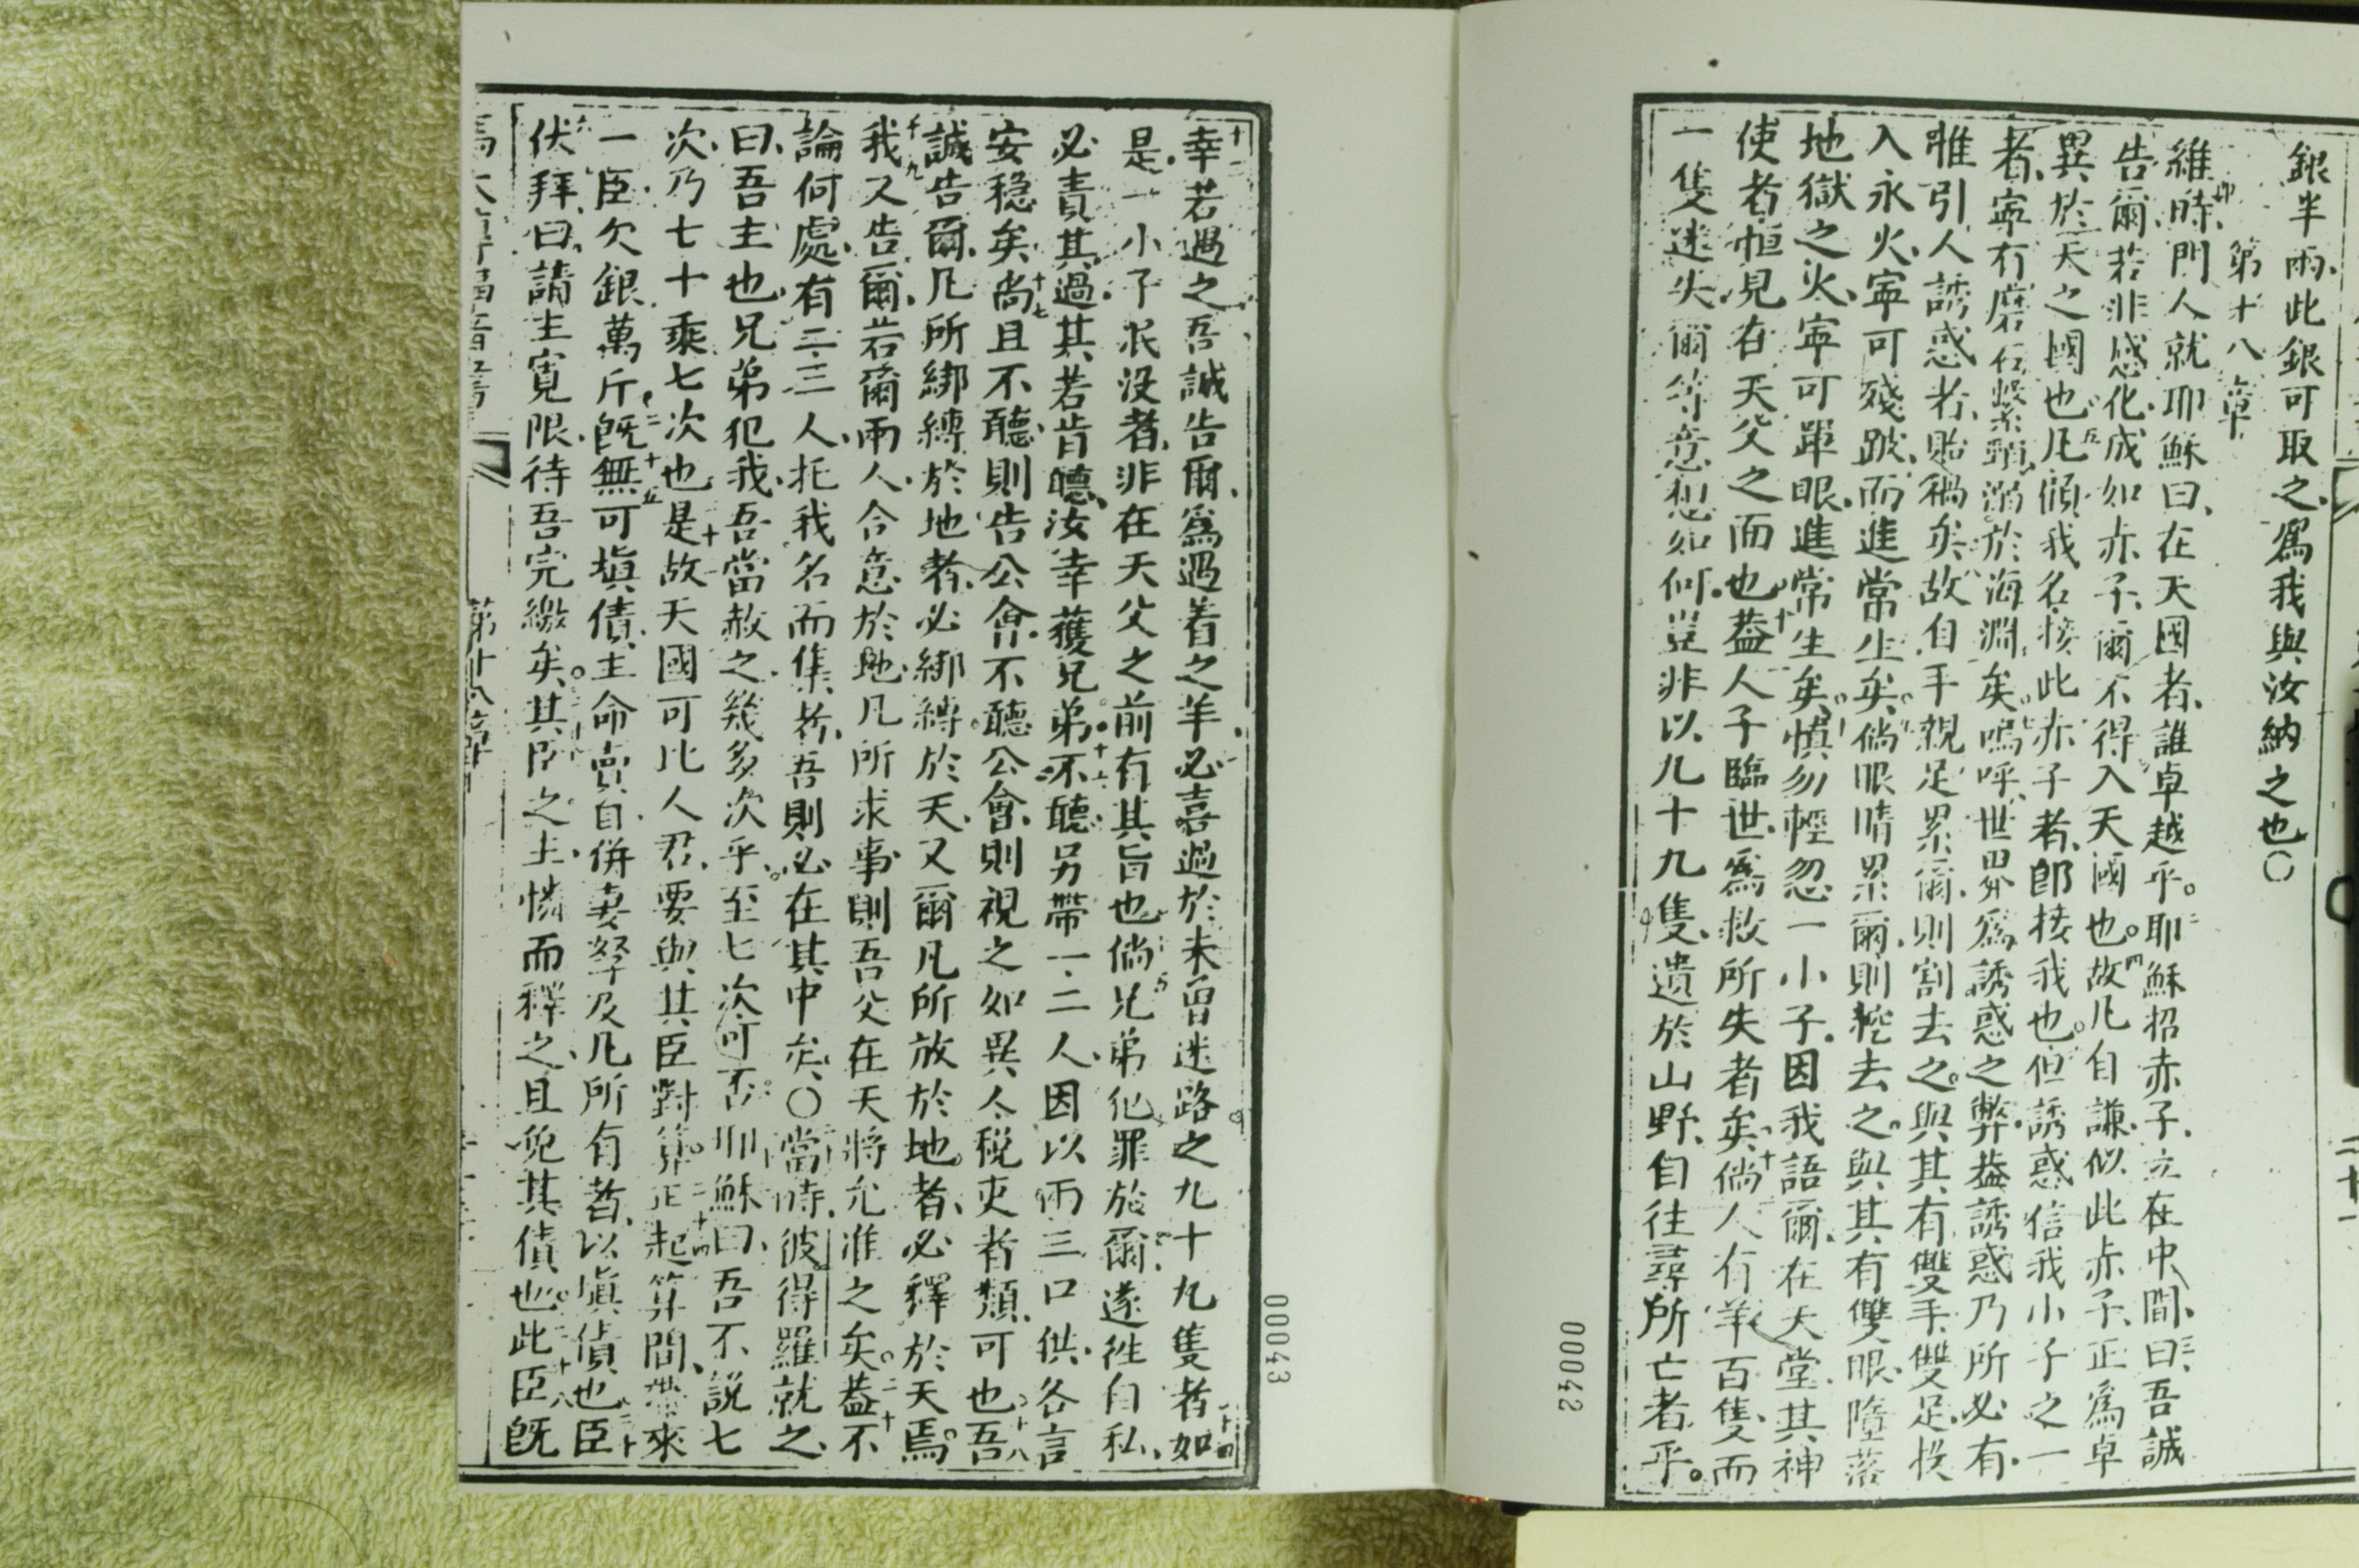 銀半兩、此銀可取之、爲我與汝納之也○
第十八章
維時、門人就耶穌曰、在天國者、誰卓越乎。耶穌招赤子、立在中間、曰、吾誠
告爾、若非感化、成如赤子、爾不得入天國也。故凡自謙、似此赤子、正爲卓
異於天之國也。凡顧我名、接此赤子者、即接我也。但誘惑信我小子之一
者、寧有磨石繫頸、溺於海淵矣。嗚呼、世界爲誘惑之弊、蓋誘惑乃所必有、
惟引人誘惑者、貽禍矣。故自手親足累爾、則割去之。與其有雙手雙足、投
入永火、寧可殘跛、而進常生矣。倘眼睛累爾、則挖去之。與其有雙眼、墮落
地獄之火、寧可單眼、進常生矣。慎勿輕忽一小子。因我語爾、在天堂、其神
使者、恒見在天父之面也。蓋人子臨世、爲救所失者矣。倘人有羊百隻、而
一隻迷失、爾等意想如何。豈非以九十九隻、遺於山野、自往尋所亡者乎。
00042
幸若遇之、吾誠告爾、爲遇着之羊、必喜過於未曾迷路之九十九隻者、如
是、一小子泯没者、非在天父之前、有其旨也。倘兄弟犯罪於爾、遂徃自私、
必責其過、其若肯聽、汝幸獲兄弟。不聽、另帶一二人、因以兩三口供、各言
安穩矣。尚且不聽、則告公會、不聽公會、則視之如異人稅吏者類、可也。吾
誠告爾、凡所綁縛於地者、必綁縛於天、又爾凡所放於地者、必釋於天焉。
我又告爾、若爾兩人、合意於地、凡所求事、則吾父在天、將允准之矣。蓋不
論何處、有二三人、托我名而集者、吾則必在其中矣、○當時、彼得羅就之、
曰、吾主也、兄弟犯我、吾當赦之幾多次乎、至七次可否。耶穌曰、吾不説七
次、乃七十乘七次也。是故天國可比人君、要與其臣對算。正起算間、帶來
一臣欠銀萬斤、既無可塡債、主命賣自併妻孥及凡所有者、以塡債也。臣
伏拜、曰、請主寬限、待吾完繳矣。其臣之主、憐而釋之、且免其債也。此臣既
00043